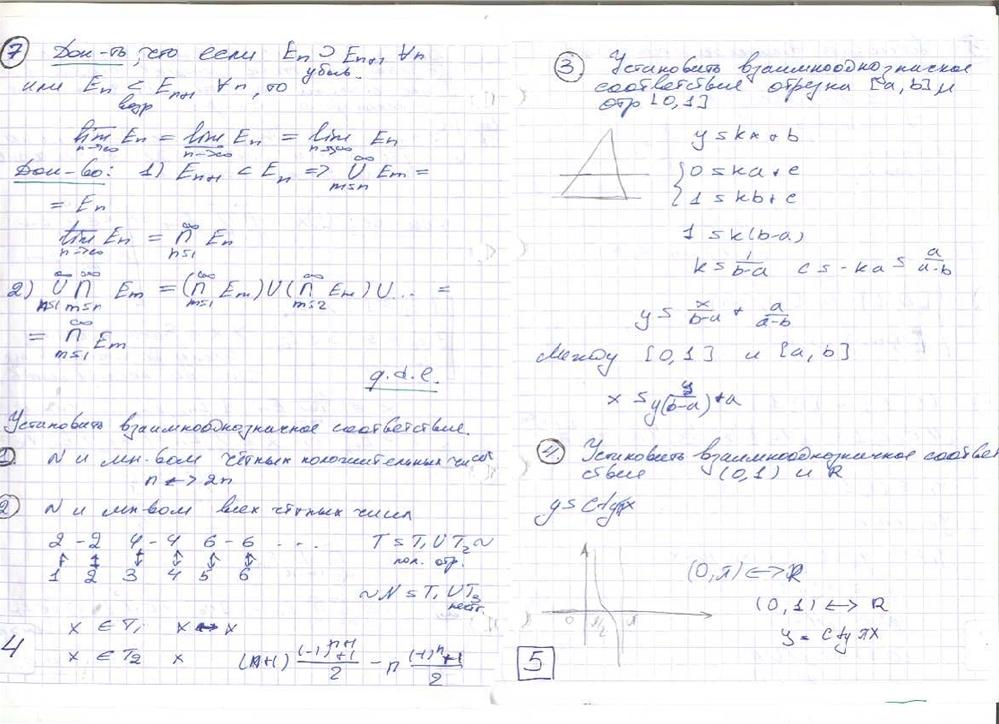 7 Док-ть, что если Eₙ ⊃ Eₙ₊₁ ∀n
убыв.
или Eₙ ⊂ Eₙ₊₁ ∀n, то
возр
lim Eₙ = lim Eₙ = lim Eₙ
n→∞ n→∞ n→∞
Док-во: 1) Eₙ₊₁ ⊂ Eₙ => ∞ ∪ m=n Eₘ =
= Eₙ
lim n→∞ Eₙ = ∞ ∩ n=1 Eₙ
2) ∞ ∪ n=1 ∞ ∩ m=n Eₘ = (∞ ∩ m=1 Eₘ) ∪ (∞ ∩ m=2 Eₘ) ∪ ... =
= ∞ ∩ m=1 Eₘ
q.d.e.
Установить взаимнооднозначное соответствие.
1. N и мн-вом чётных положительных чисел
n <-> 2n
2) N и мн-вом всех чётных чисел
2 -2 4 -4 6 -6 ...
1 2 3 4 5 6
T = T₁ ∪ T₂ ~
пол. отр.
~ N = T₁ ∪ T₃
x ∈ T₁ x ↔ x
x ∈ T₂ x (n+1) ((-1)ⁿ⁺¹+1)/2 - n ((-1)ⁿ+1)/2
4
3 Установить взаимнооднозначное
соответствие отрезка [a,b] и
отр [0,1]
y = kx + b
0 = ka + c
1 = kb + c
1 = k(b-a)
k = 1/(b-a) c = -ka = a/(a-b)
y = x/(b-a) + a/(a-b)
Между [0,1] и [a,b]
x = y(b-a) + a
4 Установить взаимнооднозначное соответ-
ствие (0,1) и R
y = ctg x
0 π/2 π
(0,π) <-> R
(0,1) <-> R
y = ctg πx
5